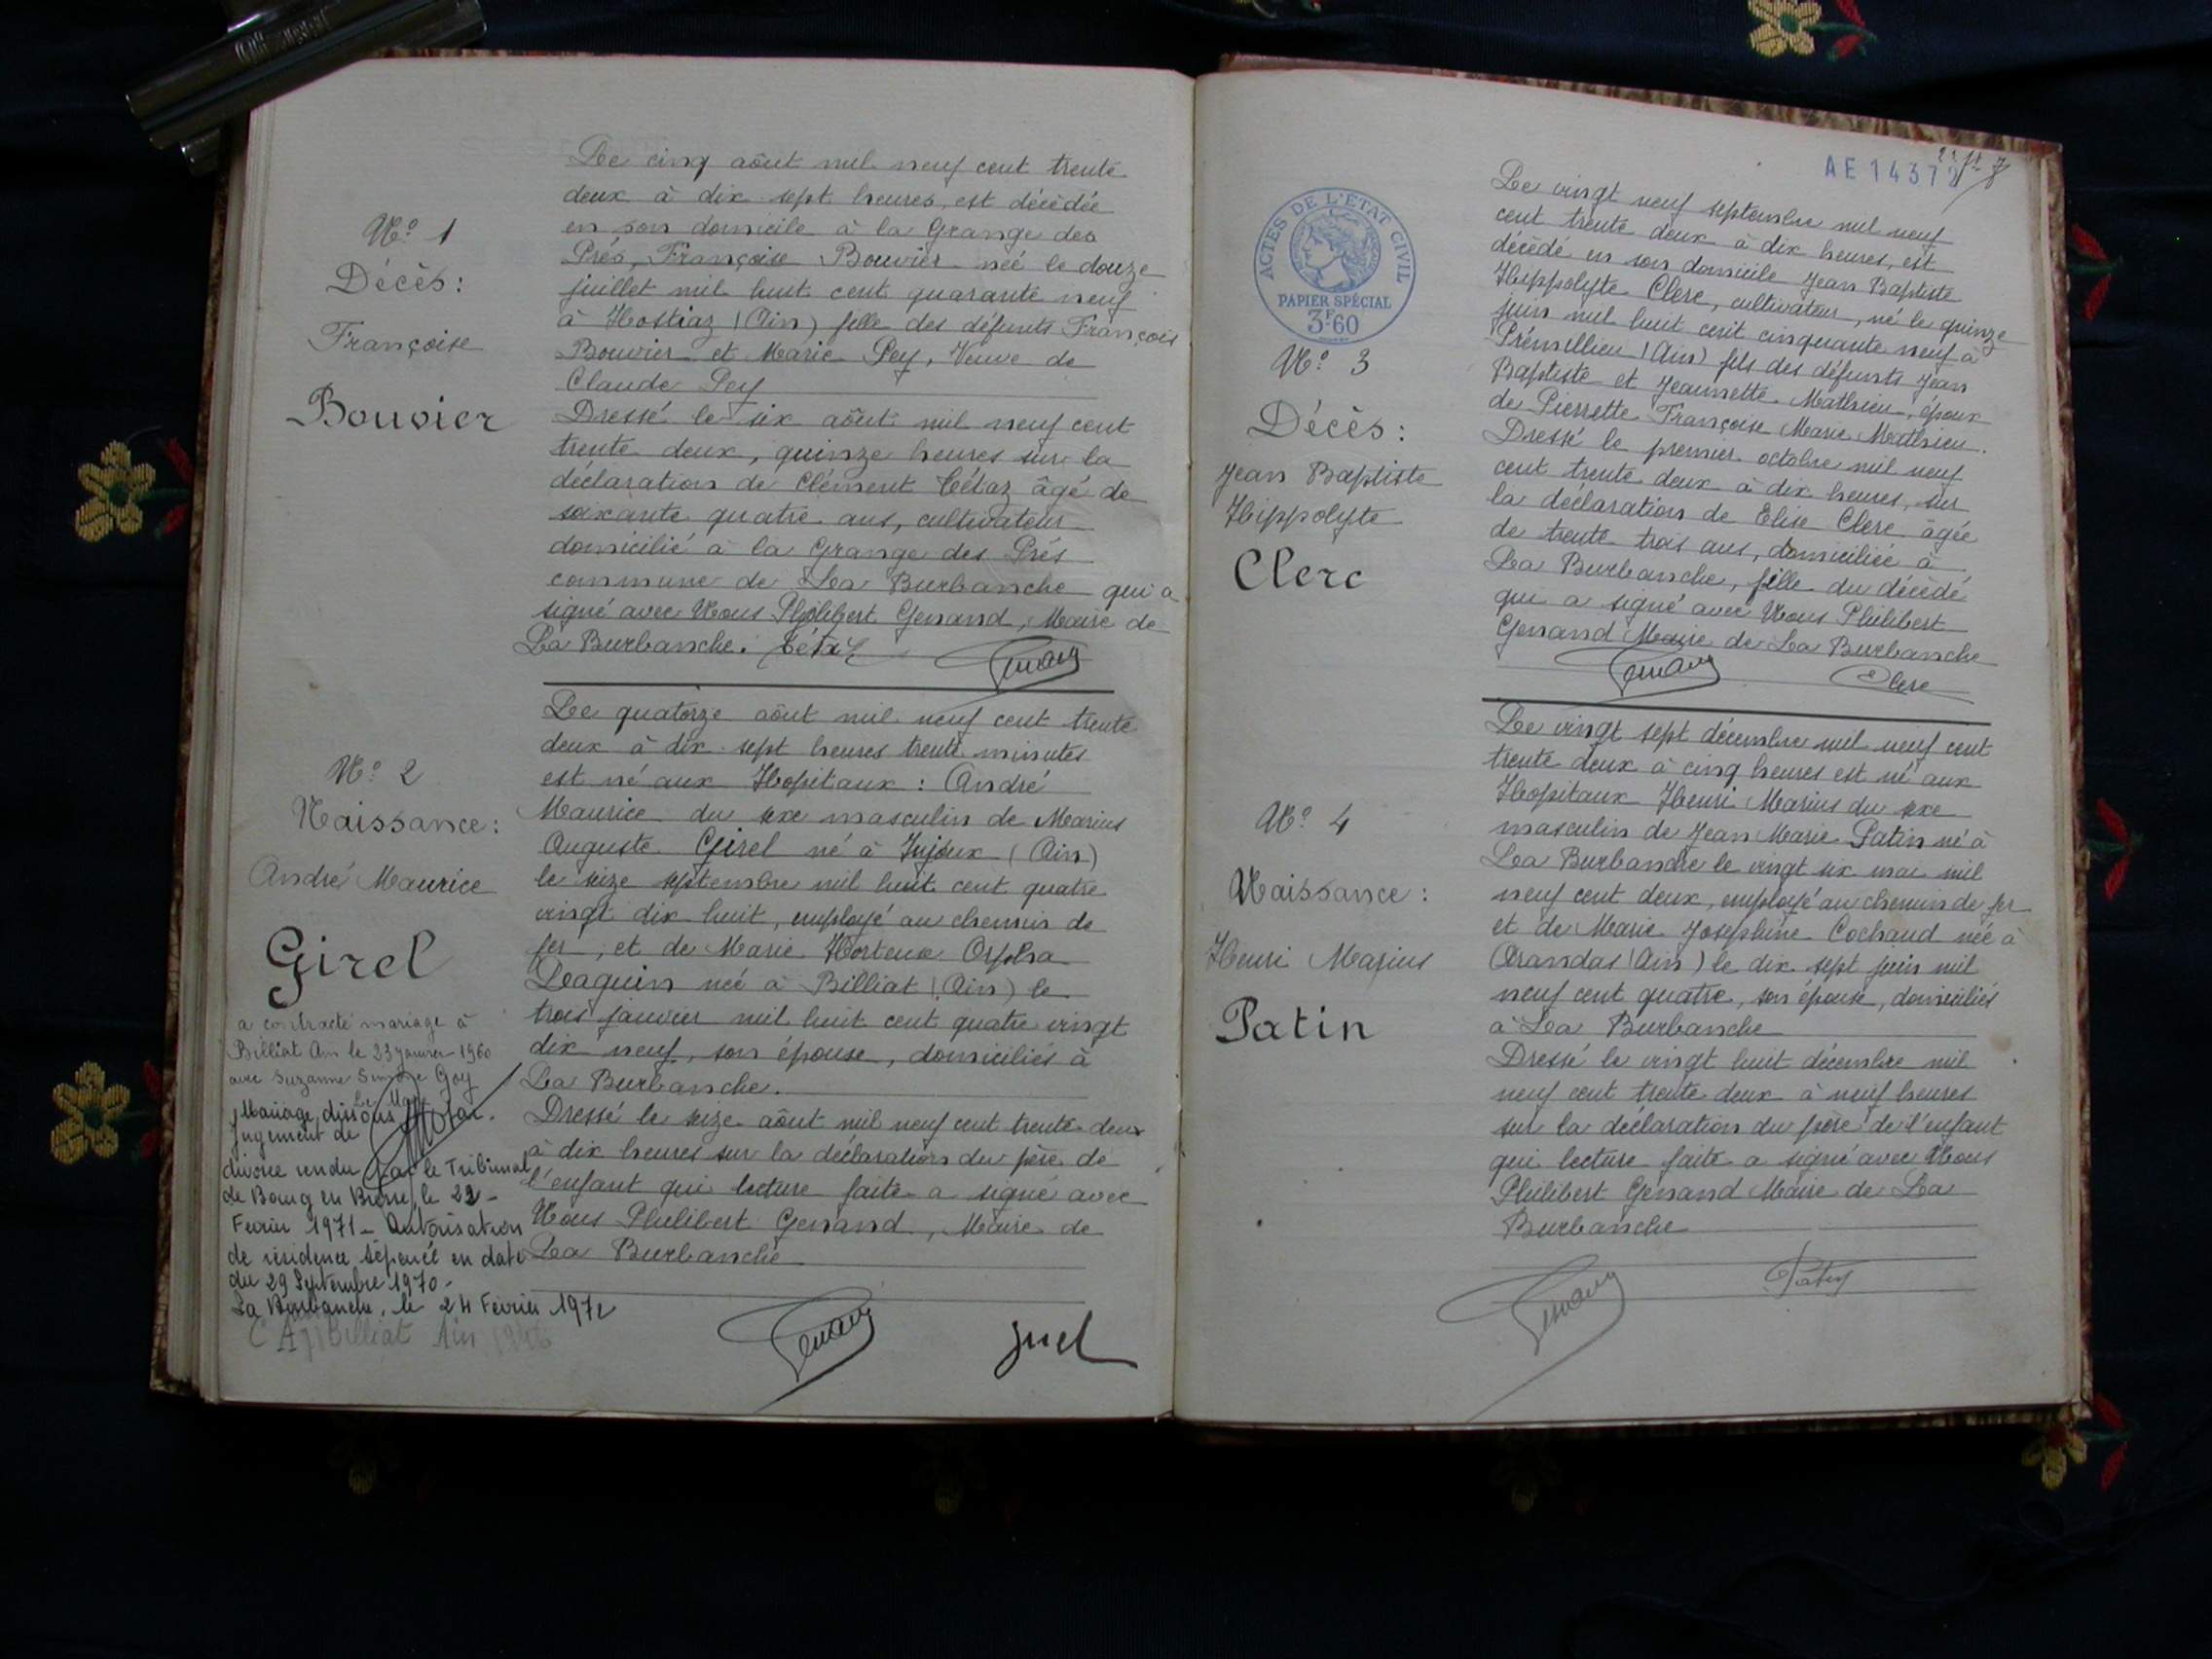 N.º 1
Décès:
Françoise
Bouvier
Le cinq aôut mil neuf cent trente
deux à dix-sept heures, est décédée
en son domicile à la Grange des
Prés, Françoise Bouvier née le douze
juillet mil huit cent quarante neuf
à Hostiaz (Ain) fille des défunts François
Bouvier et Marie Pey, Veuve de
Claude Pey
Dressé le six aôut mil neuf cent
trente deux, quinze heures sur la
déclaration de Clément Tétaz âgé de
soixante quatre ans, cultivateur
domicilié à la Grange des Prés
commune de La Burbanche qui a
signé avec Nous Philibert Genand, Maire de
La Burbanche. Tétaz Genand
N.º 2
Naissance:
André Maurice
Girel
a contracté mariage à
Billiat Ain le 23 janvier 1960
avec Suzanne Simone Goy
Le Maire
Mariage dissous
jugement de
divorce rendu par le Tribunal
de Bourg en Bresse, le 22 -
Février 1971 - Autorisation
de résidence séparée en date
du 29 Septembre 1970 -
La Burbanche, le 24 Février 1971
Billiat Ain
Le quatorze aôut mil neuf cent trente
deux à dix-sept heures trente minutes
est né aux Hopitaux : André
Maurice du sexe masculin de Marius
Auguste Girel né à Injoux (Ain)
le seize septembre mil huit cent quatre
vingt dix huit, employé au chemin de
fer, et de Marie Hortense Orpha
Daguin née à Billiat (Ain) le
trois janvier mil huit cent quatre vingt
dix neuf, son épouse, domiciliés à
La Burbanche.
Dressé le seize aôut mil neuf cent trente deux
à dix heures sur la déclaration du père de
l'enfant qui lecture faite a signé avec
Nous Philibert Genand, Maire de
La Burbanche
Genand Girel
AE 14372
ACTES DE L'ETAT CIVIL
PAPIER SPÉCIAL
3F60
N.º 3
Décès:
Jean Baptiste
Hippolyte
Clerc
Le vingt neuf septembre mil neuf
cent trente deux à dix heures, est
décédé en son domicile Jean Baptiste
Hippolyte Clerc, cultivateur, né le quinze
juin mil huit cent cinquante neuf à
Prémillieu (Ain) fils des défunts Jean
Baptiste et Jeannette Mathieu, époux
de Pierrette Françoise Marie Mathieu.
Dressé le premier octobre mil neuf
cent trente deux à dix heures, sur
la déclaration de Elise Clerc âgée
de trente trois ans, domiciliée à
La Burbanche, fille du décédé
qui a signé avec Nous Philibert
Genand Maire de La Burbanche
Genand Clerc
N.º 4
Naissance:
Henri Marius
Patin
Le vingt sept décembre mil neuf cent
trente deux à cinq heures est né aux
Hopitaux Henri Marius du sexe
masculin de Jean Marie Patin né à
La Burbanche le vingt six mai mil
neuf cent deux, employé au chemin de fer
et de Marie Joséphine Cochaud née à
Arandas (Ain) le dix sept juin mil
neuf cent quatre, son épouse, domiciliés
à La Burbanche
Dressé le vingt huit décembre mil
neuf cent trente deux à neuf heures
sur la déclaration du père de l'enfant
qui lecture faite a signé avec Nous
Philibert Genand Maire de La
Burbanche
Genand Patin